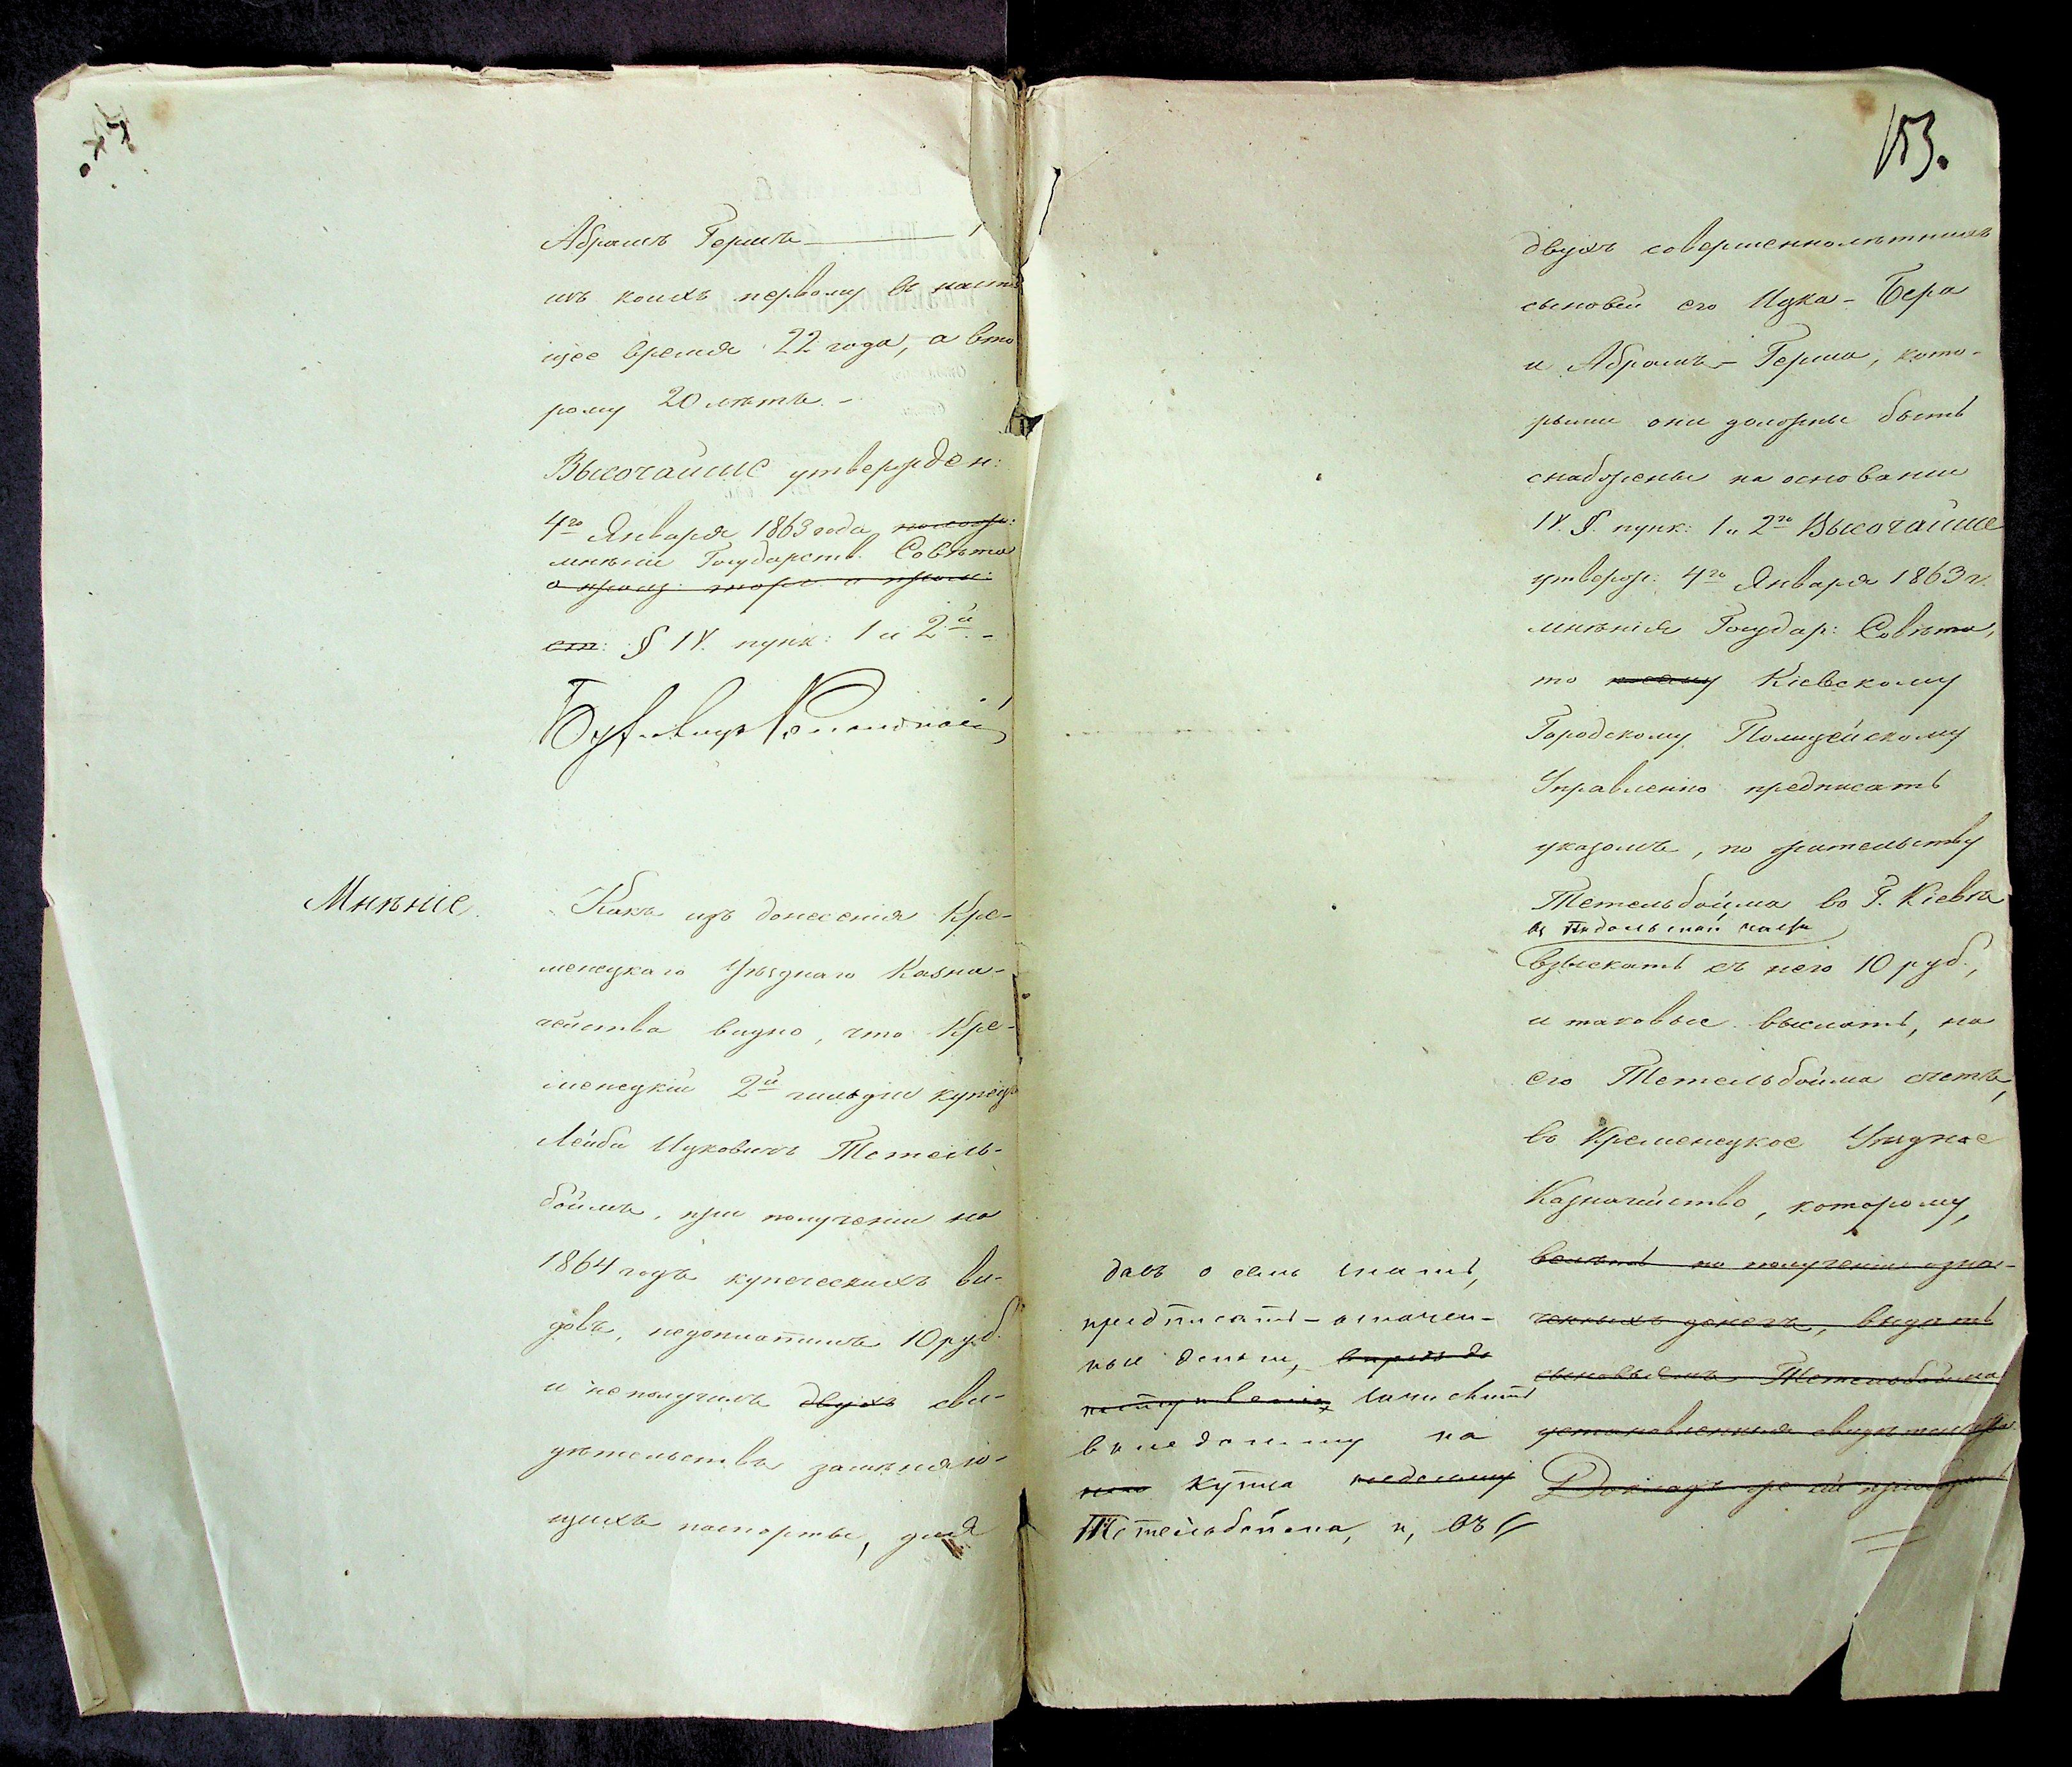 Абрамъ Гершъ — 1
изъ коихъ первому въ насто
щее время 22 года, а вто
рому 20 лѣтъ. –
Высочайше утвержден:
4го Января 1863 года
мнѣніе Государств. Совѣта
о
ст: § IV. пунк: 1 и 2й. –
Мнѣніе.
Какъ изъ донесенія Кре-
менецкаго Уѣзднаго Казна-
чейства видно, что Кре-
менецкій 2й гильдіи купецъ
Лейба Ицковичъ Тетель-
боймъ, при полученіи на
1864 годъ купеческихъ ви-
довъ, недоплатилъ 10 руб.
и неполучилъ двухъ сви-
дѣтельствъ замѣняю-
щихъ паспорты, для
153.
двухъ совершеннолѣтнихъ
сыновей его Ицка-Бера
и Абрамъ-Герша, кото-
рыми они должны быть
снабжены на основаніи
IV. §. пунк: 1 и 2го Высочайше
утверж: 4го Января 1863 г.
мнѣнія Государ: Совѣта,
то Кіевскому
Городскому Полицейскому
Управленію предписать
указомъ, по жительству
Тетельбойма въ Г. Кіевѣ
въ Подольской части
взыскать съ него 10 руб.,
и таковые выслать, на
его Тетельбойма счетъ,
въ Кременецкое Уѣздное
Казначейство, которому,
велѣть по полученіи озна-
ченныхъ денегъ, выдать
сыновьямъ Тетельбойма
установленныя свидѣтельства
Докладъ
давъ о семъ знать,
предписать – означен-
ныя деньги,
зачислить
въ недоимку на
купца недоимку
Тетельбойма, и, въ